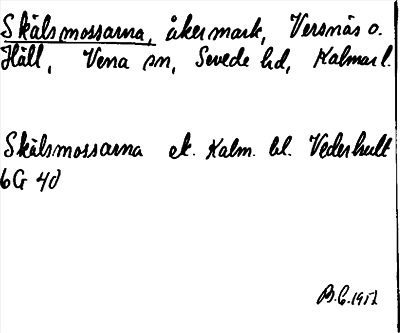 Skälsmossarna, åkermark, Versnäs o.
Häll, Vena sn, Sevede hd, Kalmar l.
Skälsmossarna ek. Kalm. bl. Vederhult
6G 4d
B.G. 1952